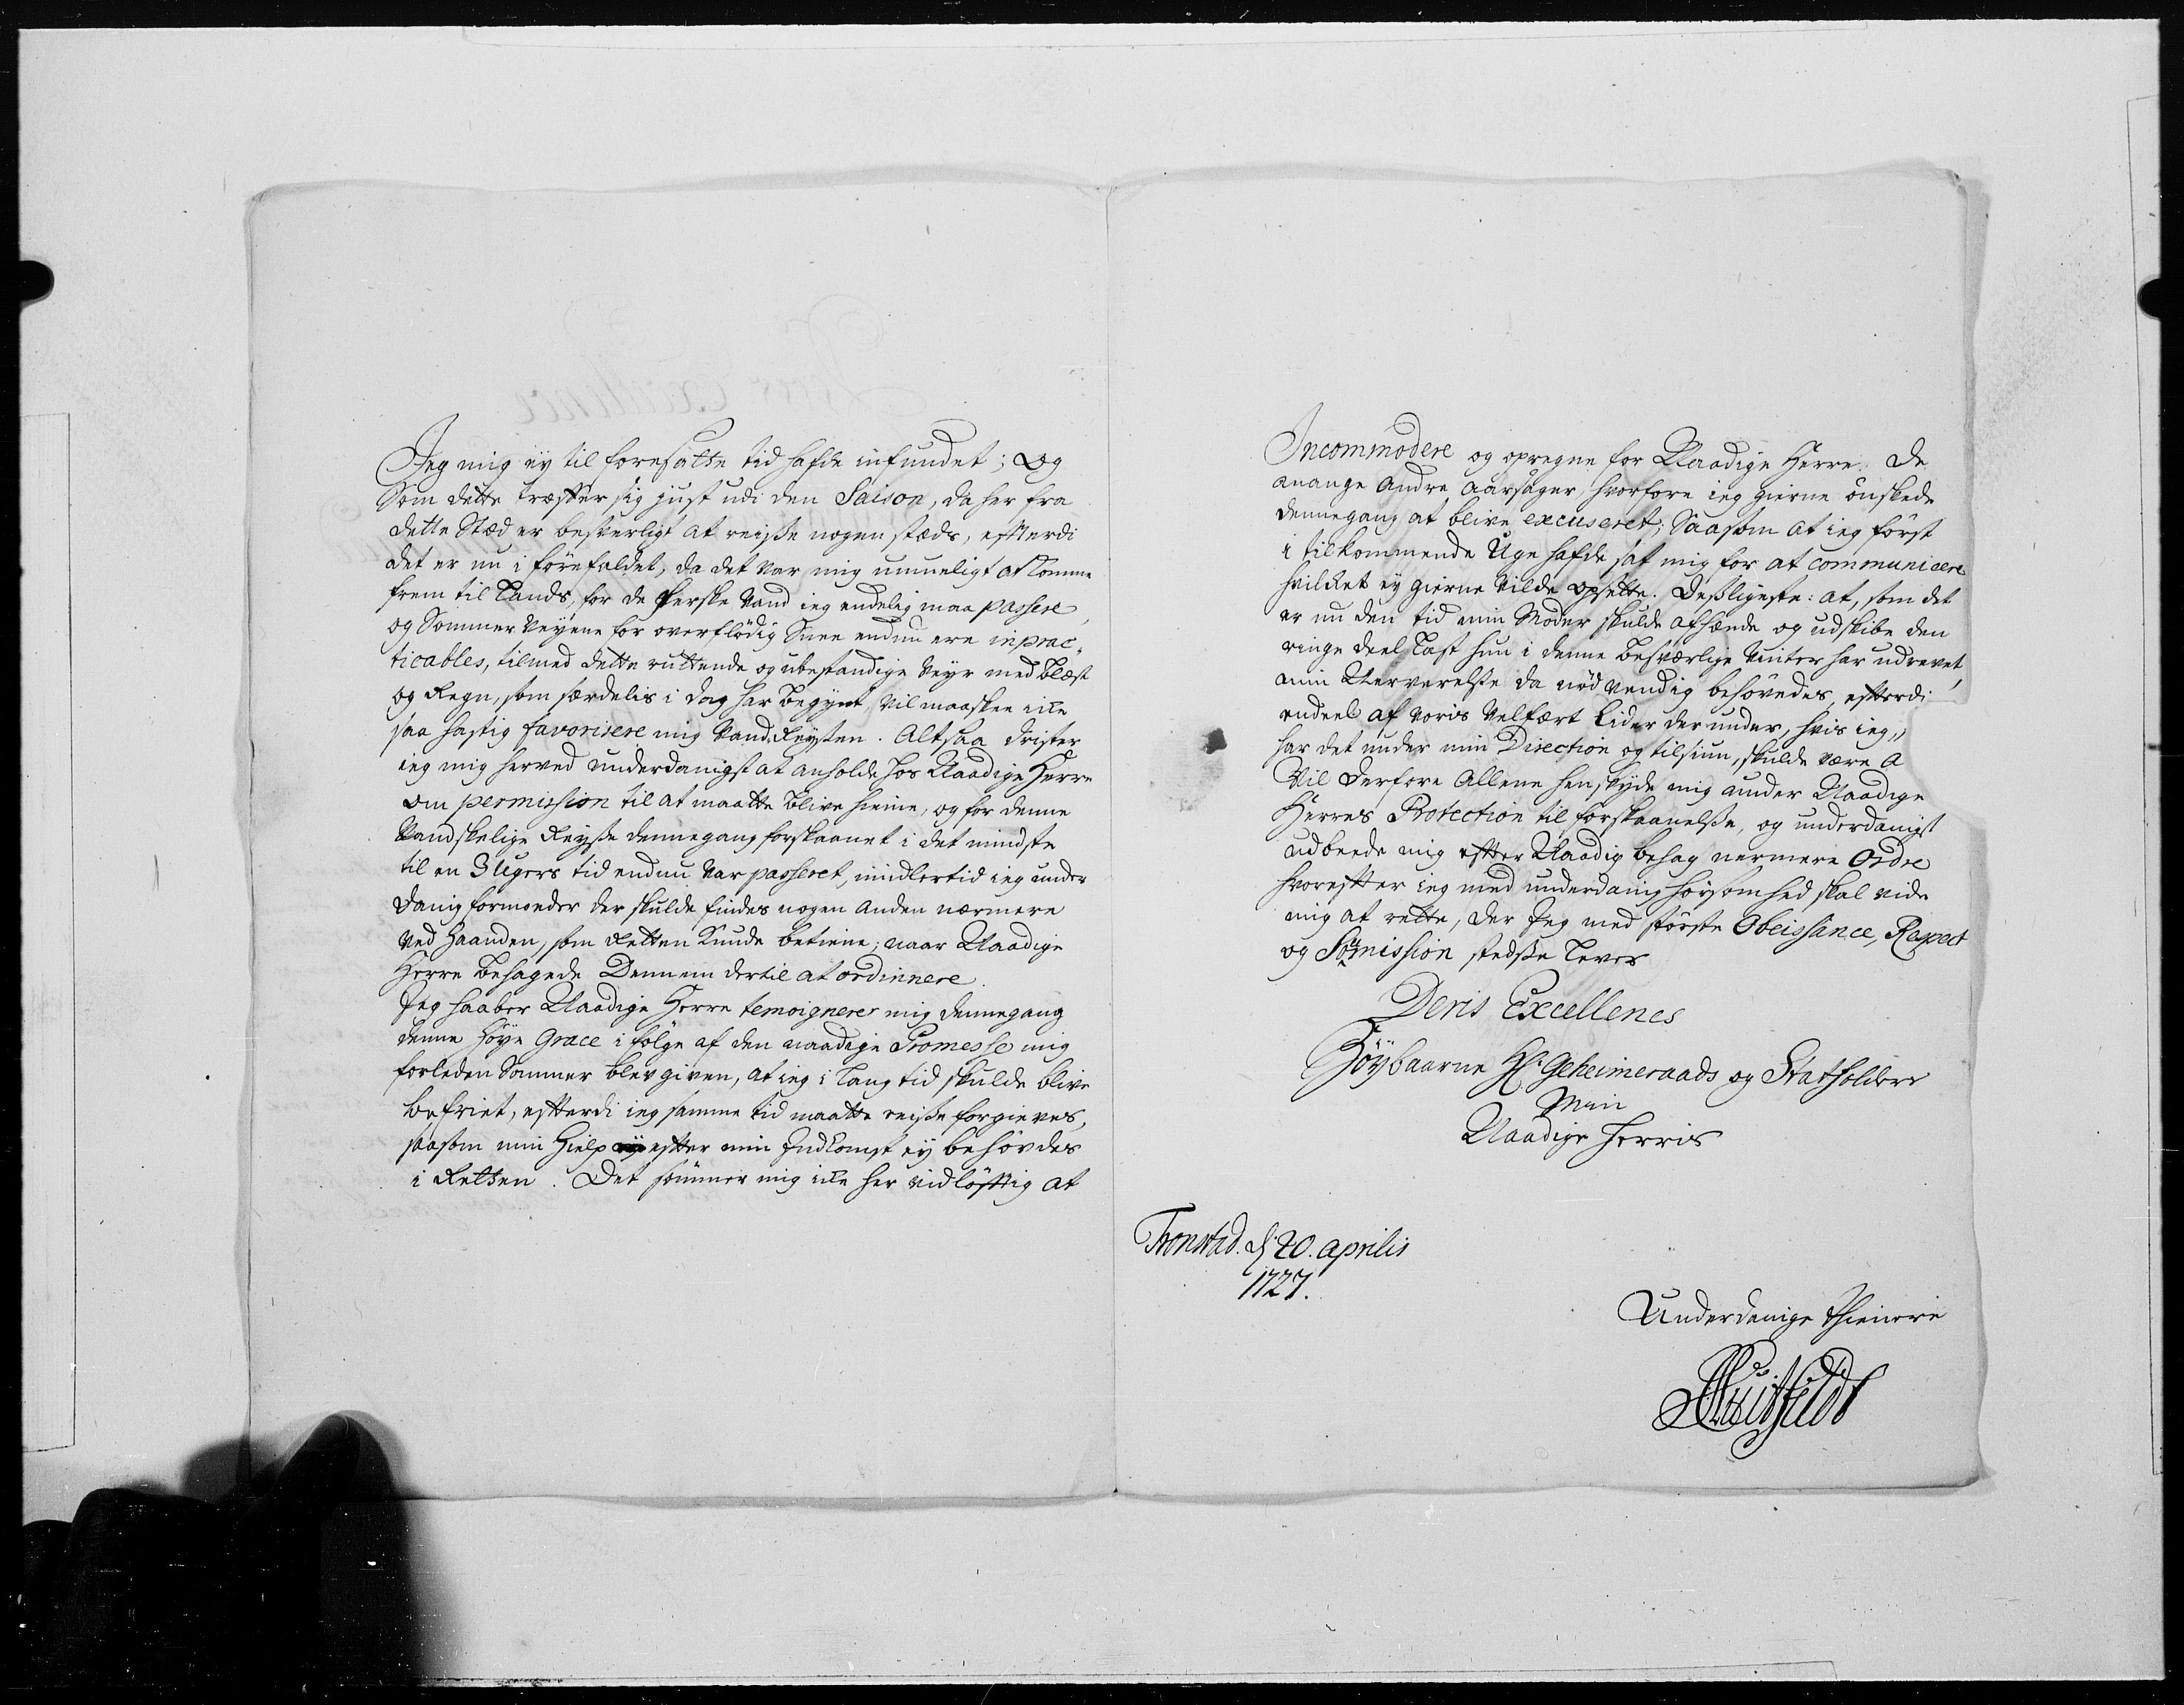 Jeg mig ey til foresatte tid hafde infundet; Og
Som dette træffer sig just udi den Saison, da her fra
dette Stæd er besverligt at reisse nogen stæds, efterdi
det er nu i förefaldet, da det var mig umueligt at komme
frem til Lands, for de ferske Vand ieg endelig maa passere,
og Sommer Veyene for overflödig Snee endnu ere inprac-
ticables, tilmed dette ruttende og ubestandige Veyr med Blæst
og Regn, som særdelis i dag har begynt, vil maaskee icke
saa hastig favorisere mig Vand-Reysen. Altsaa drister
ieg mig herved underdanigst at anholde hos Naadige Herre
om permission til at maatte blive hieme, og for denne
Vandskelige Reysse dennegang forskaanet i det mindste
til en 3 Ugers tid endnu var passeret, imidlertid ieg under
danig formoder der skulde findes nogen anden nærmere
ved Haanden, som Retten kunde betiene, naar Naadige
Herre behagede Dennem dertil at ordinere.
Jeg haaber Naadige Herre temoignerer mig dennegang
denne Höye Grace i fölge af den naadige Promesse mig
forleden Sommer blev given, at ieg i lang tid skulde blive
befriet, efterdi ieg samme tid maatte reise forgieves,
saasom min Hielp efter min Indkomst ey behövdes
i Retten. Det sömmer mig icke her vidlöftig at
Incommodere og opregne for Naadige Herre de
mange andre aarsager, hvorfore ieg gierne önskede
dennegang at blive excuseret; Saasom at ieg först
i tilkommende Uge hafde sat mig for at communicere
hvilket ey gierne vilde opsette. Dessligeste: at, som det
er nu den tid min Moder skulde afsende og udskibe den
ringe deel Last hun i denne besværlige Vinter har udrevet,
min Nerverelse da nödvendig behövedes, efterdi
endeel af voris Velfært lider derunder, hvis ieg,
har det under min Direction og tilsiun, skulde være a
Vil derfore Allene henskyde mig under Naadige
Herres Protection til forskaanelsse, og underdanigst
udbeede mig efter Naadig behag nermere Ordre
hvorefter ieg med underdanig hörsomhed skal vide
mig at rette, der Jeg med störste Obeissance, Respect
og Soumission stedsse lever
Deris Excellences
Höybaarne Hr Geheimeraads og Statholders
Min
Naadige Herris
Tronstad. d. 20. aprilis
1727.
Underdanige thienere
Huitfeldt